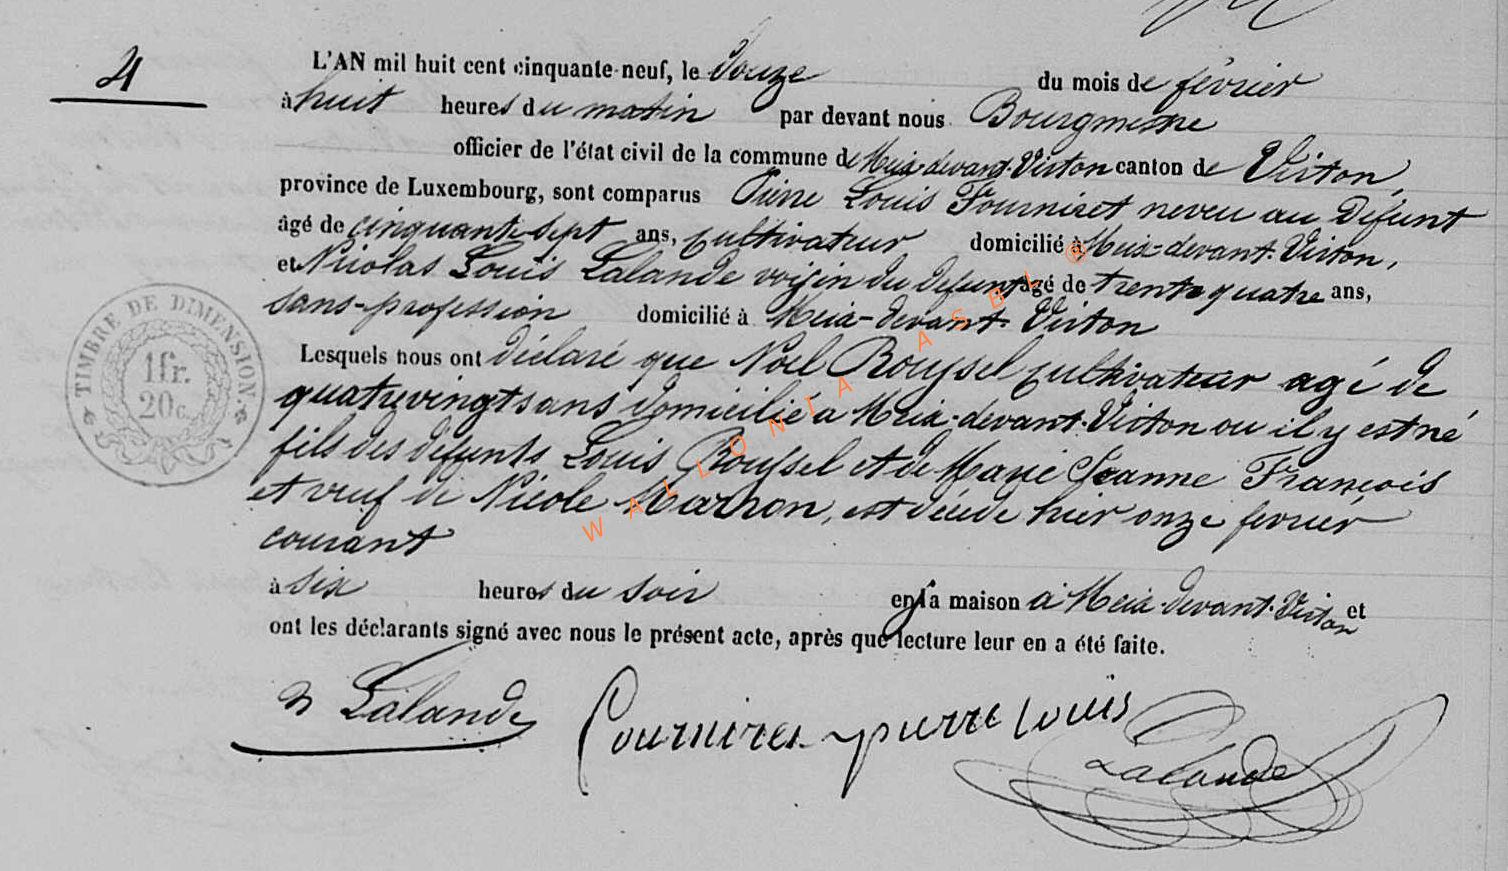 4
L'AN mil huit cent cinquante-neuf, le douze du mois de février
à huit heures du matin par devant nous Bourgmestre
officier de l'état civil de la commune de Meix-devant-Virton canton de Virton,
province de Luxembourg, sont comparus Pierre Louis Fourniret neveu au défunt
âgé de cinquante-sept ans, cultivateur domicilié à Meix-devant-Virton,
et Nicolas Louis Lalande voisin du défunt âgé de trente quatre ans,
sans-profession domicilié à Meix-devant-Virton
Lesquels nous ont déclaré que Noël Roussel cultivateur agé de
quatrevingts ans domicilié a Meix-devant-Virton ou il y est né
fils des défunts Louis Roussel et de Marie Jeanne François
et veuf de Nicole Marson, est décédé hier onze février
courant
à six heures du soir en sa maison à Meix-devant-Virton et
ont les déclarants signé avec nous le présent acte, après que lecture leur en a été faite.
TIMBRE DE DIMENSION
1 fr.
20 c.
n Lalande
fourniret pierre louis
Lalande
WALLONIA ASBL ®